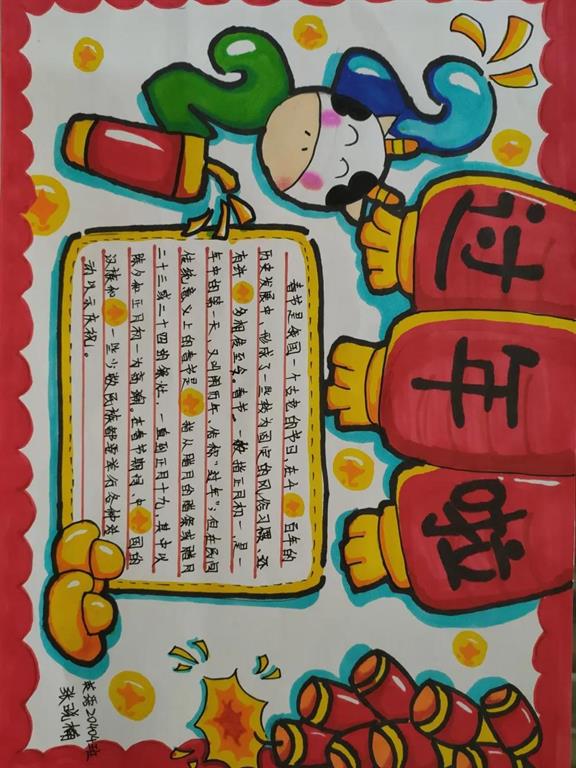 2 2
过年啦
春节是我国一个古老的节日,在千百年的
历史发展中,形成了一些较为固定的风俗习惯,还
有许多相传至今。春节,一般指正月初一,是一
年中的第一天,又叫阴历年,俗称“过年”;但在民间
传统意义上的春节是指从腊月的腊祭或腊月
二十三或二十四的祭灶,一直到正月十九,其中以
除夕和正月初一为高潮。在春节期间,中国的
汉族和一些少数民族都要举行各种活
动以示庆祝。
英语20404班
张晓楠